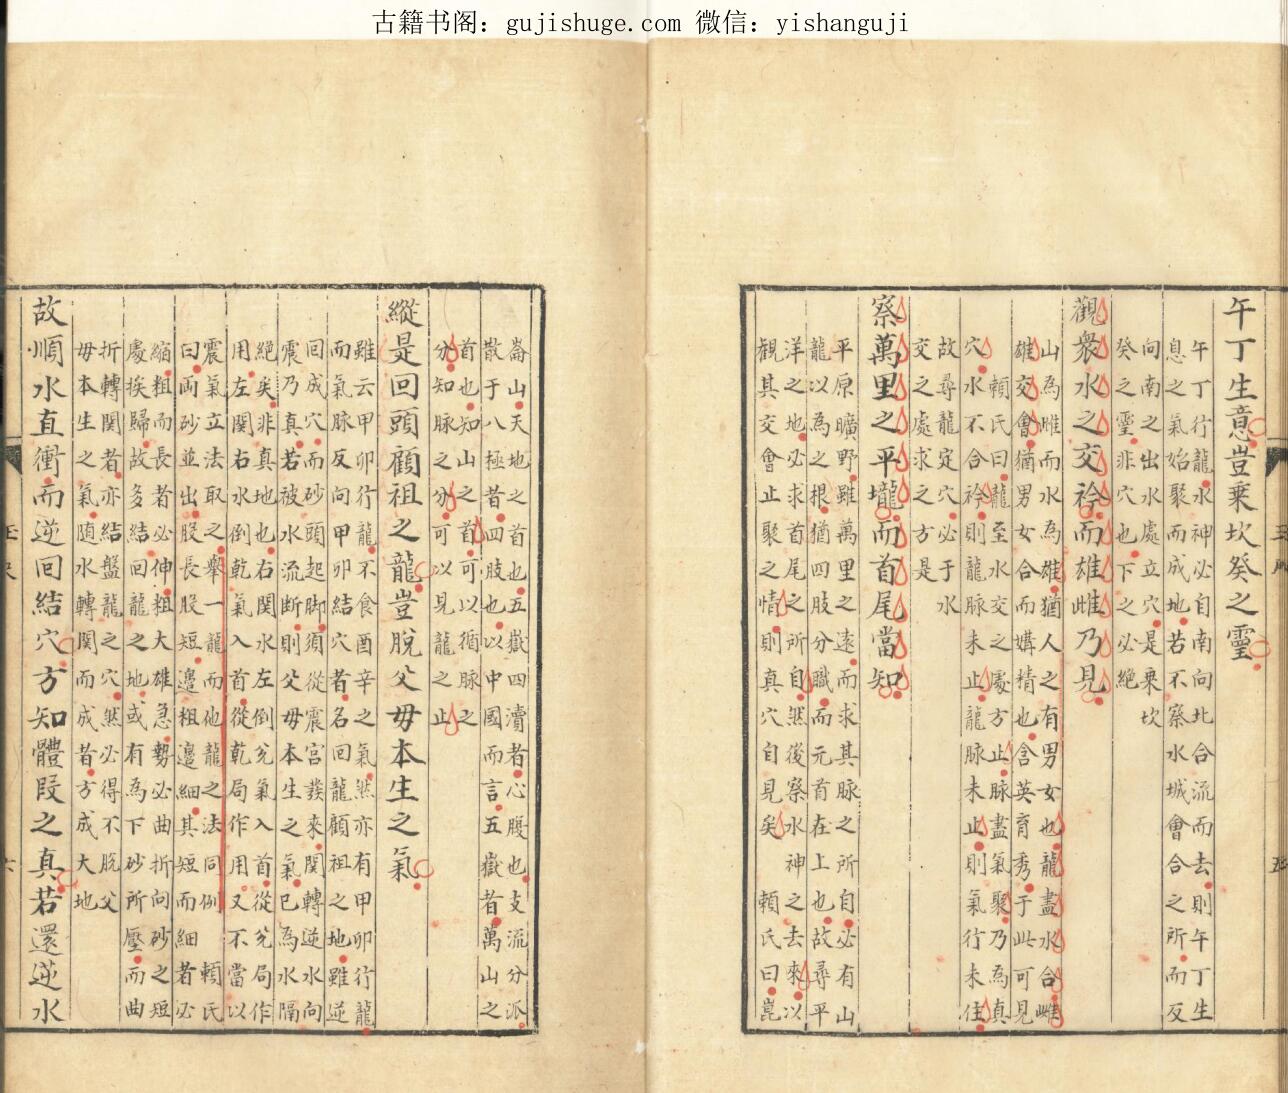 古籍书阁：gujishuge.com 微信：yishanguji
午丁生意豈乗坎癸之靈
午丁行龍水神必自南向北合流而去則午丁生
息之氣始聚而成地若不察水城會合之所而反
向南之出水處立穴是乗坎
癸之靈非穴也下之必絶
觀衆水之交衿而雄雌乃見
山為雌而水為雄猶人之有男女也龍盡水合雌
雄交會猶男女合而媾精也含英育秀于此可見
頼氏曰龍至水交之處方止脉盡氣聚乃為真
穴水不合衿則龍脉未止龍脉未止則氣行未住
故尋龍定穴必于水
交之處求之方是
察萬里之平壠而首尾當知
平原曠野雖萬里之遠而求其脉之所自必有山
龍以為之根猶四肢分職而元首在上也故尋平
洋之地必求首尾之所自然後察水神之去來以
觀其交會止聚之情則真穴自見矣 頼氏曰崑
崙山天地之首也五嶽四瀆者心腹也支流分派
散于八極者四肢也以中國而言五嶽者萬山之
首也知山之首可以循脉之
分知脉之分可以見龍之止
縱是回頭顧祖之龍豈脫父毋本生之氣
雖云甲卯行龍不食酉辛之氣然亦有甲卯行龍
而氣脉反向甲卯結穴者名回龍顧祖之地雖逆
回成穴而砂頭起脚須從震宫發來関轉逆水向
震乃真若被水流斷則父毋本生之氣已為水隔
絶矣非真地也右関水左倒兊氣入首從兊局作
用左関右水倒乾氣入首從乾局作用又不當以
震氣立法取之舉一龍而他龍之法同例 頼氏
曰両砂並出股長股短邉粗邉細其短而細者必
縮粗而長者必伸粗大雄急勢必曲折向砂之短
處挨歸故多結回龍之地或有為下砂所壓而曲
折轉関者亦結盤龍之穴然必得不脫父
毋本生之氣随水轉関而成者方成大地
故順水直衝而逆回結穴方知體段之真若還逆水